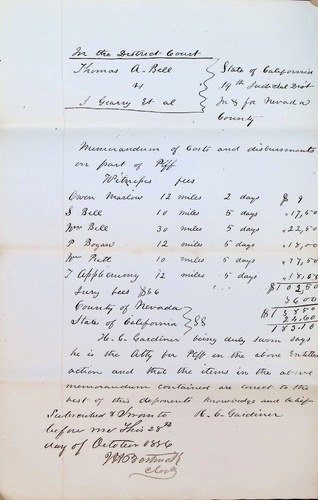 In the District Court
Thomas A. Bell State of California
vs 14th Judicial Dist
J Gearry Et al In & for Nevada
County
Memorandum of Costs and disbursments
on part of Plff
Witnesses fees
Owen Marlow 12 miles 2 days $ 9
S Bell 10 miles 5 days 17,50
Wm Bell 30 miles 5 days 22,50
P Bogan 12 miles 5 days 18,00
Wm Pratt 10 miles 5 days 17,50
T Applecumy 12 miles 5 days 18,00
Jury fees $36 $102,50
36 00
County of Nevada $138 50
State of California SS 24.60
163.10
H. C. Gardiner being duly sworn says
he is the Atty for Plff in the above Entitled
action and that the items in the above
memorandum contained are correct to the
best of this deponents Knowledge and belief
Subscribed & Sworn to H. C. Gardiner
before me This 28th
day of October 1856
Clerk